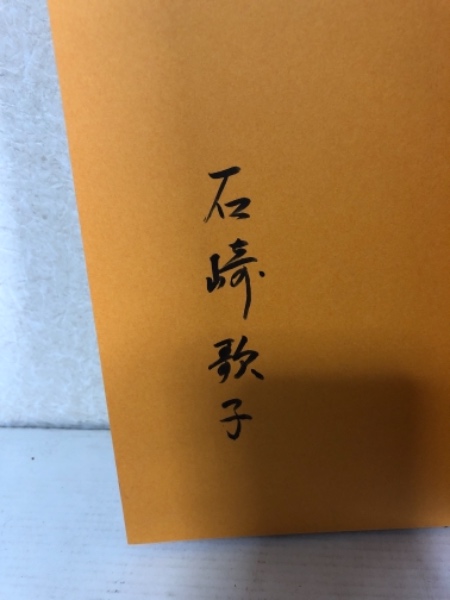 石崎歌子